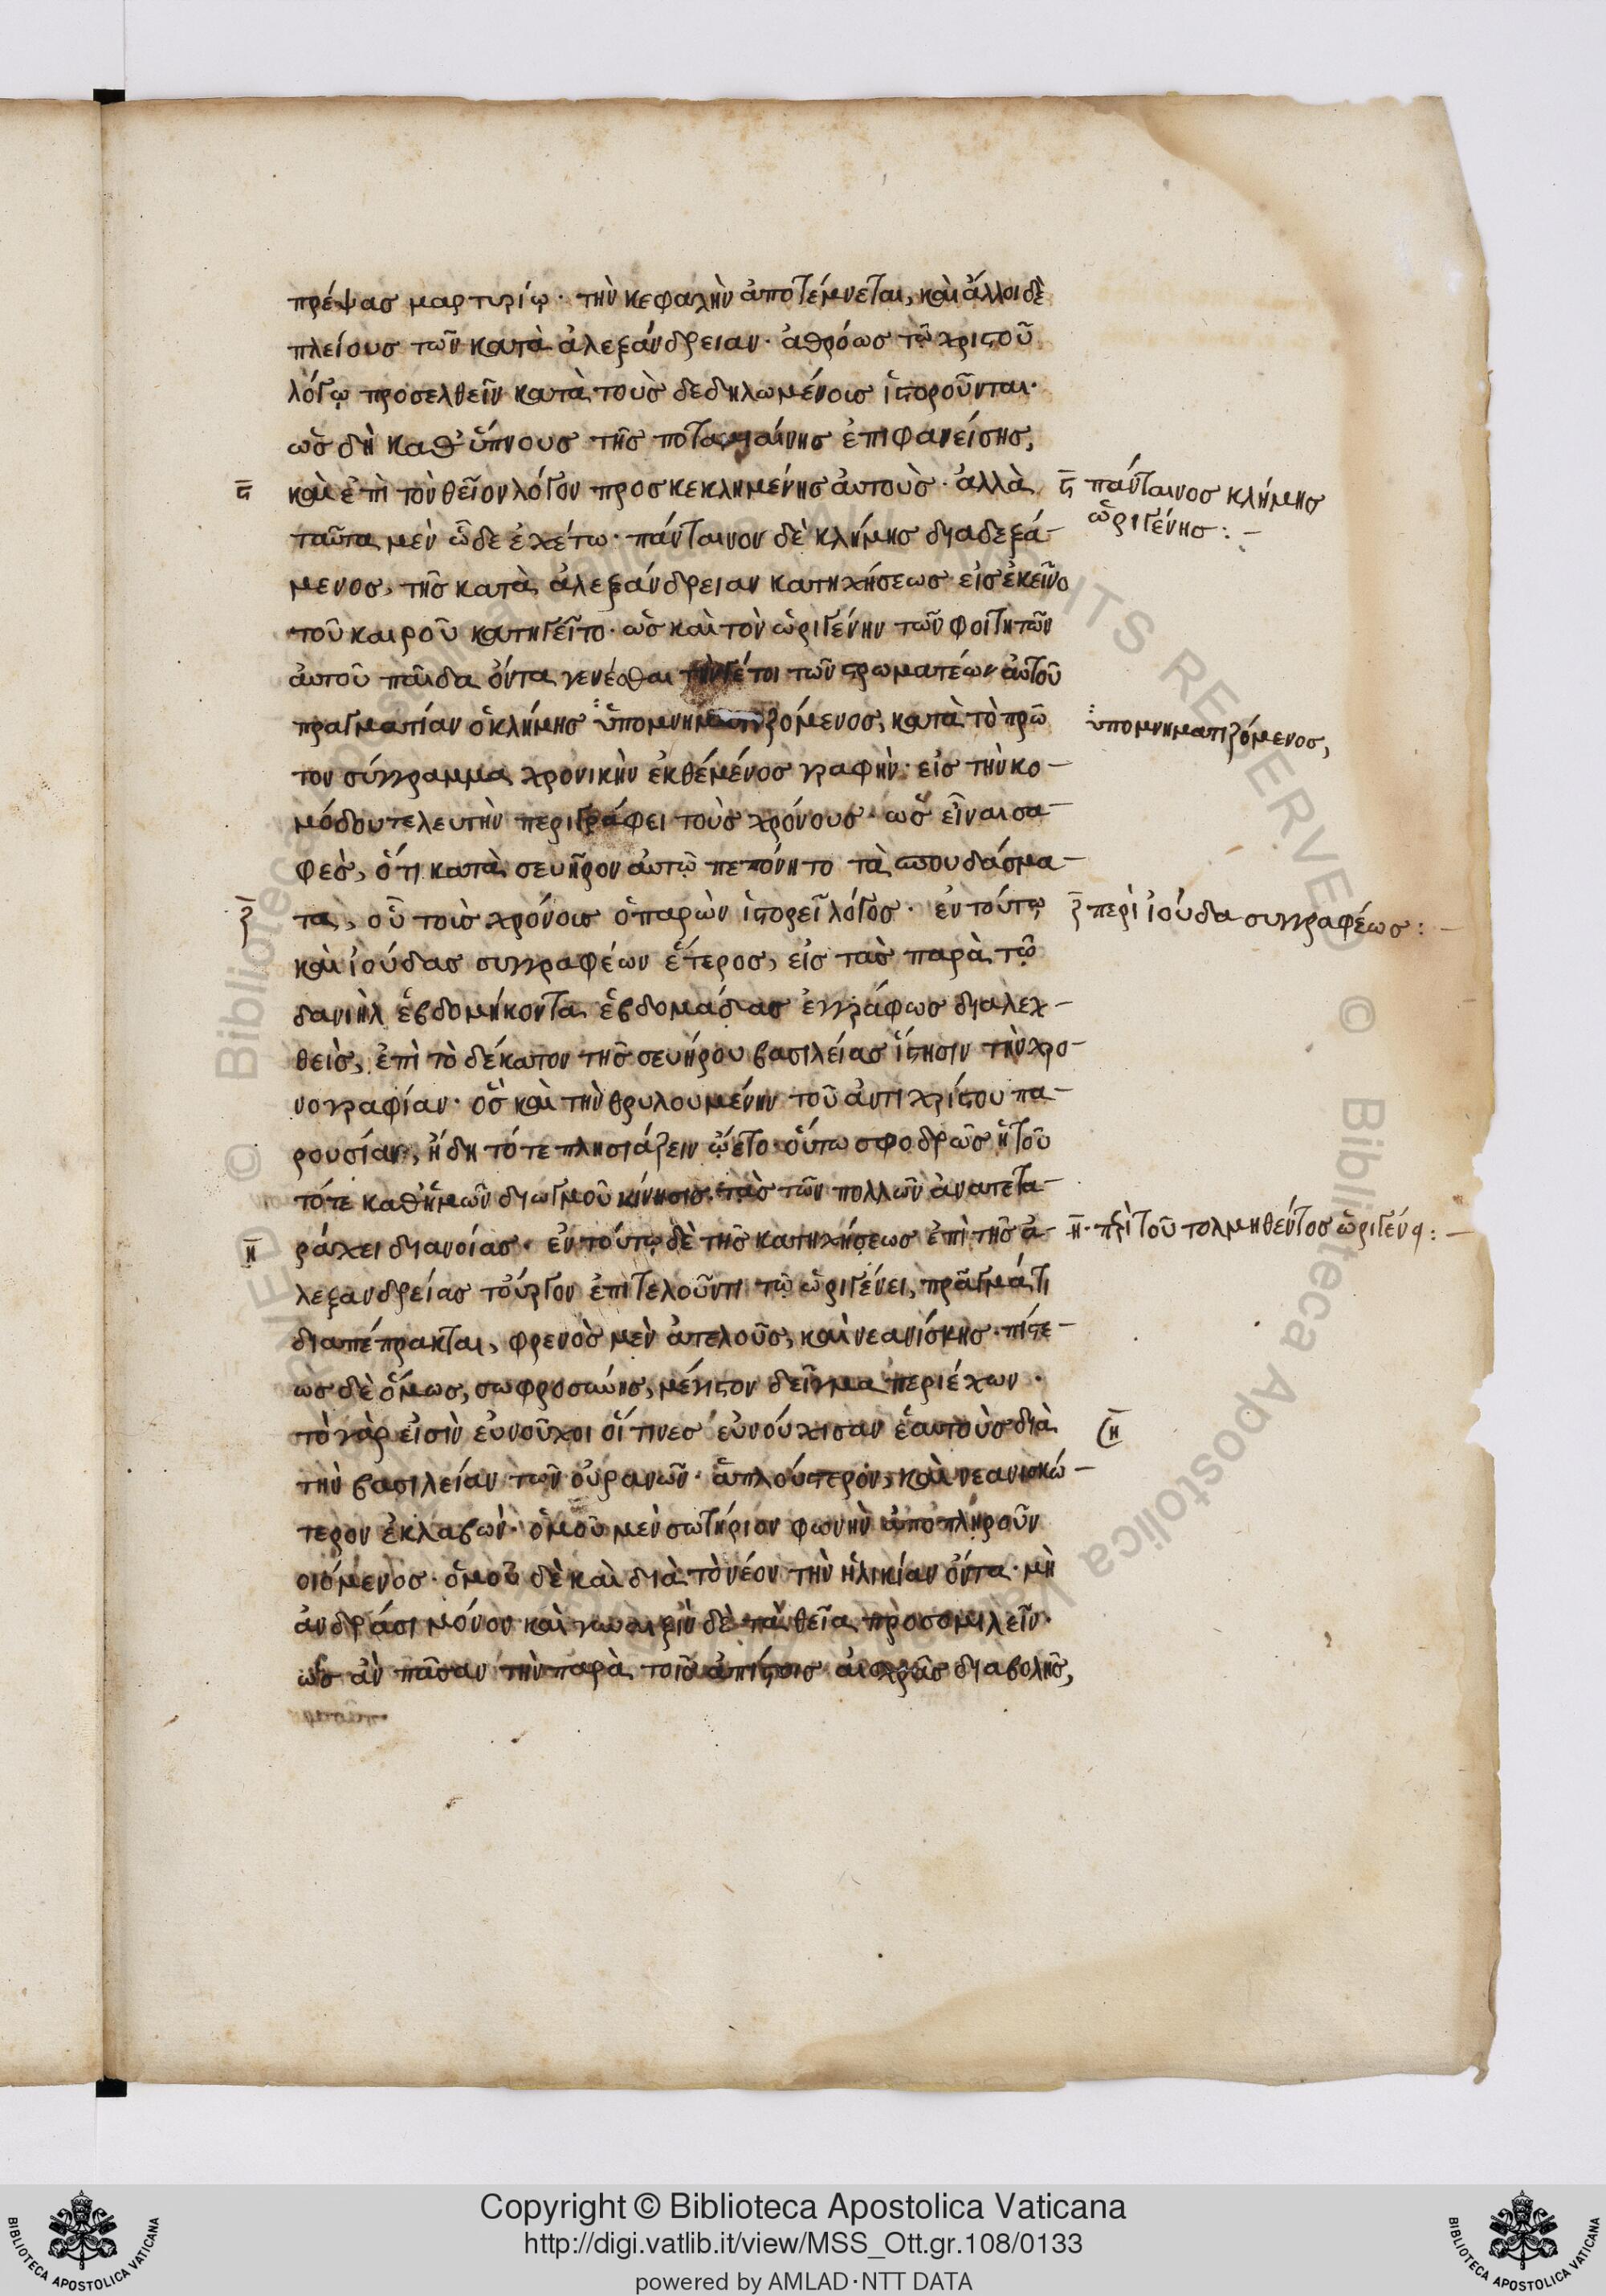 πρέψας μαρτυρίῳ· τὴν κεφαλὴν ἀποτέμνεται, καὶ ἄλλοι δὲ
πλείους τῶν κατὰ ἀλεξάνδρειαν· ἀθρόως τῷ χριστοῦ
λόγῳ προσελθεῖν κατὰ τοὺς δεδηλωμένους ἱστοροῦνται·
ὡς δὴ καθ' ὕπνους τῆς ποταμιαίνης ἐπιφανείσης,
ϛ καὶ ἐπὶ τὸν θεῖον λόγον προσκεκλημένης αὐτοὺς· ἀλλὰ
ϛ πάνταινος κλήμης
ὠριγένης:-
ταῦτα μὲν ὧδε ἐχέτω· πάνταινον δὲ κλήμης διαδεξά-
μενος, τῆς κατὰ ἀλεξάνδρειαν κατηχήσεως εἰς ἐκεῖνο
τοῦ καιροῦ καθηγεῖτο· ὡς καὶ τὸν ὠριγένην τῶν φοιτητῶν
αὐτοῦ παῖδα ὄντα γενέσθαι τήν γέ τοι τῶν στρωματέων αὐτοῦ
πραγματίαν ὁ κλήμης ὑπομνηματιζόμενος, κατὰ τὸ πρῶ
ὑπομνηματιζόμενος,
τον σύγγραμμα χρονικὴν ἐκθέμενος γραφὴν· εἰς τὴν κο-
μόδου τελευτὴν περιγράφει τοὺς χρόνους· ὡς εἶναι σα-
φὲς, ὅτι κατὰ σευῆρον αὐτῷ πεπόνητο τὰ σπουδάσμα-
ζ τα, οὗ τοὺς χρόνους ὁ παρὼν ἱστορεῖ λόγος· ἐν τούτῳ
ζ περὶ ἰούδα συγγραφέως:-
καὶ ἰούδας συγγραφέων ἕτερος, εἰς τὰς παρὰ τῷ
δανιὴλ ἑβδομήκοντα ἑβδομάδας ἐγγράφως διαλεχ-
θεὶς, ἐπὶ τὸ δέκατον τῆς σευήρου βασιλείας ἵστησιν τὴν χρο-
νογραφίαν· ὃς καὶ τὴν θρυλουμένην τοῦ ἀντιχρίστου πα-
ρουσίαν, ἤδη τότε πλησιάζειν ᾤετο· οὕτω σφοδρῶς ἡ τοῦ
τότε καθ' ἡμῶν διωγμοῦ κίνησις, τὰς τῶν πολλῶν ἀνατετα-
η ράχει διανοίας· ἐν τούτῳ δὲ τῆς κατηχήσεως ἐπὶ τῆς ἀ-
η· περὶ τοῦ τολμηθέντος ὠριγένῃ:-
λεξανδρείας τοὖργον ἐπιτελοῦντι τῷ ὠριγένει, πρᾶγμά τι
διαπέπρακται, φρενὸς μὲν ἀτελοῦς, καὶ νεανίσκης· πίστε-
ως δὲ ὅμως, σωφροσύνης, μέγιστον δεῖγμα περιέχων·
τὸ γὰρ εἰσὶν εὐνοῦχοι οἵτινες εὐνούχισαν ἑαυτοὺς διὰ
η
τὴν βασιλείαν τῶν οὐρανῶν· ἁπλούστερον, καὶ νεανικώ-
τερον ἐκλαβὼν· ὁμοῦ μὲν σωτήριον φωνὴν ἀποπληροῦν
οἰόμενος· ὁμοῦ δὲ καὶ διὰ τὸ νέον τὴν ἡλικίαν ὄντα· μὴ
ἀνδράσι μόνον καὶ γυναιξὶν δὲ τὰ θεῖα προσομιλεῖν·
ὡς ἂν πᾶσαν τὴν παρὰ τοῖς ἀπίστοις αἰσχρᾶς διαβολῆς,